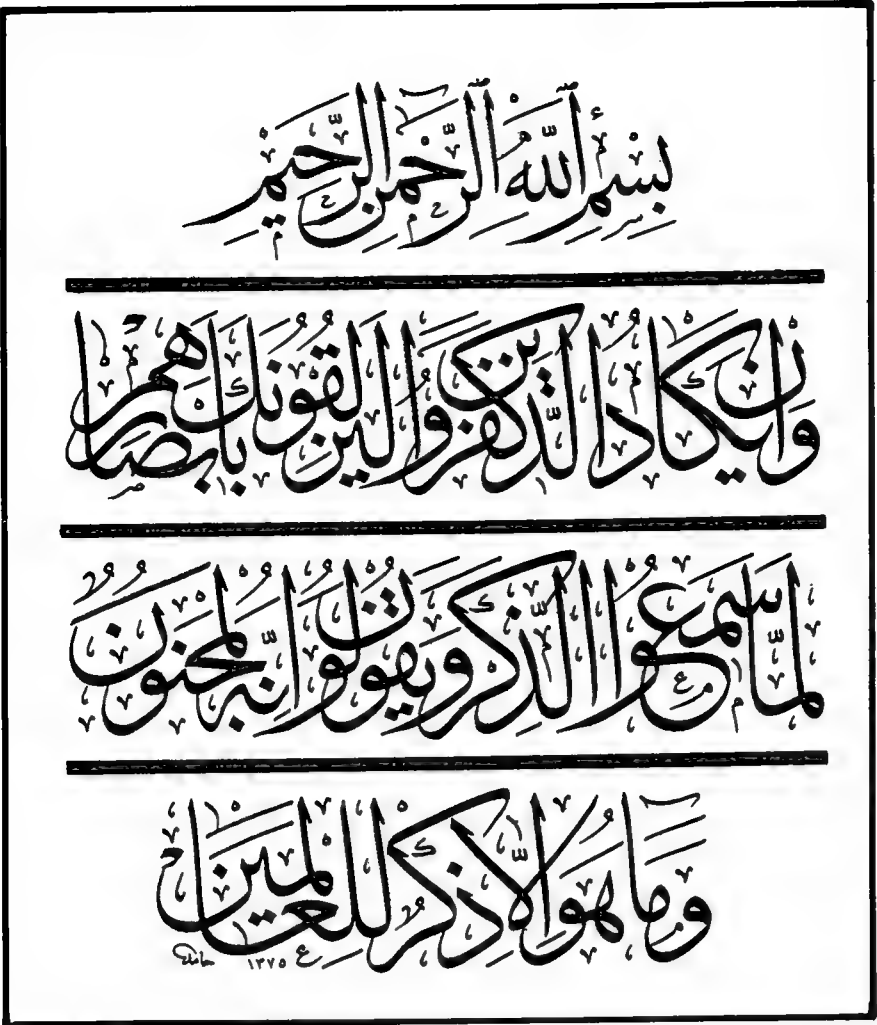 بِسْمِ ٱللَّهِ ٱلرَّحْمٰنِ ٱلرَّحِيمِ
وَاِنْ يَكَادُ الَّذ۪ينَ كَفَرُوا لَيُزْلِقُونَكَ بِاَبْصَارِهِمْ
لَمَّا سَمِعُوا الذِّكْرَ وَيَقُولُونَ اِنَّهُ لَمَجْنُونٌ
وَمَا هُوَ اِلَّا ذِكْرٌ لِلْعَالَمِينَ
حامد ١٣٧٥